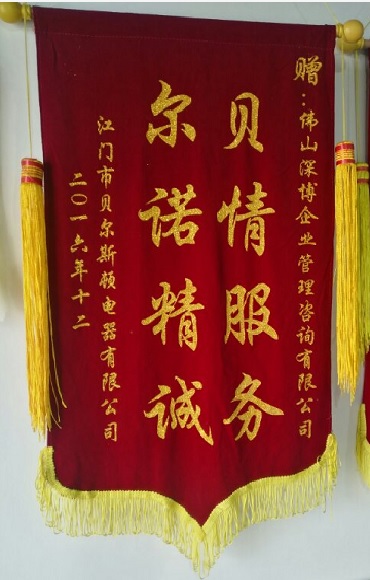 赠：佛山深博企业管理咨询有限公司
贝情服务
尔诺精诚
江门市贝尔斯顿电器有限公司
二〇一六年十二